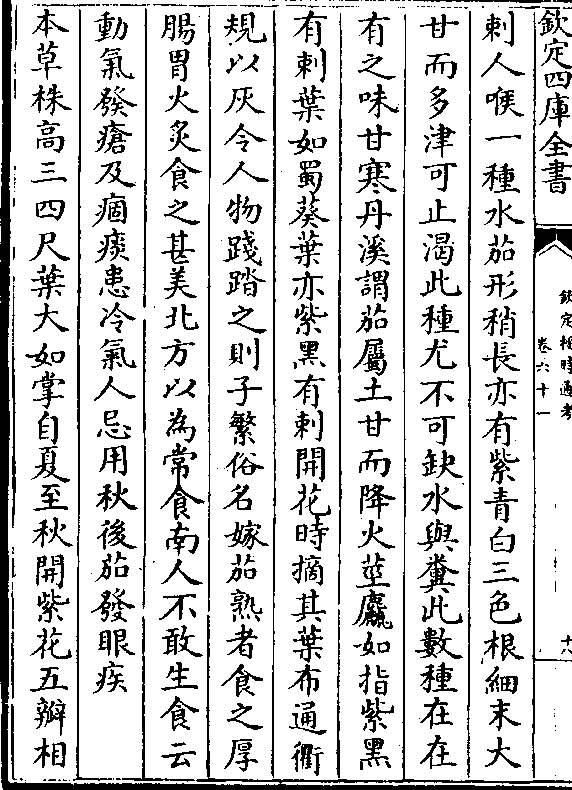 欽定四庫全書
欽定授時通考
卷六十一
十八
刺人喉一種水茄形稍長亦有紫青白三色根細末大
甘而多津可止渴此種尤不可缺水與糞此數種在在
有之味甘寒丹溪謂茄屬土甘而降火莖麤如指紫黑
有刺葉如蜀葵葉亦紫黑有刺開花時摘其葉布通衢
規以灰令人物踐踏之則子繁俗名嫁茄熟者食之厚
腸胃火炙食之甚美北方以為常食南人不敢生食云
動氣發瘡及痼痰患冷氣人忌用秋後茄發眼疾
本草株高三四尺葉大如掌自夏至秋開紫花五瓣相